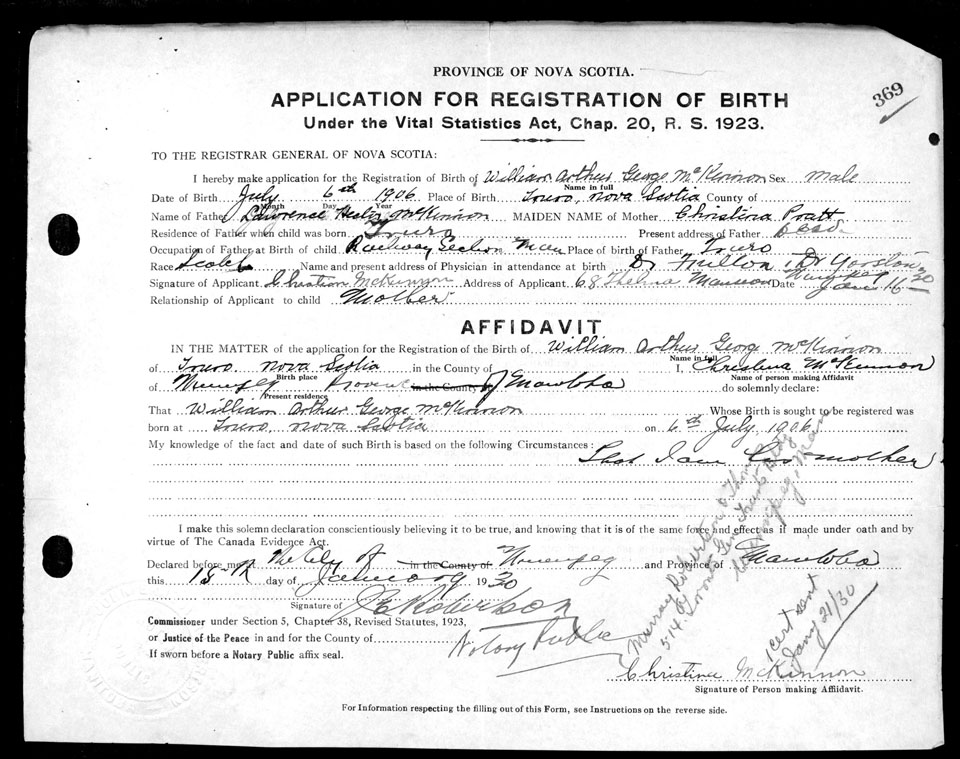 369
PROVINCE OF NOVA SCOTIA.
APPLICATION FOR REGISTRATION OF BIRTH
Under the Vital Statistics Act, Chap. 20, R. S. 1923.
TO THE REGISTRAR GENERAL OF NOVA SCOTIA:
I hereby make application for the Registration of Birth of William Arthur George McKinnon Sex male
Name in full
Date of Birth July 6th 1906 Place of Birth Truro, Nova Scotia County of
Month Day Year
Name of Father Lawrence McKinnon MAIDEN NAME of Mother Christina Pratt
Residence of Father when child was born Truro Present address of Father
Occupation of Father at Birth of child Railway Section Man Place of birth of Father Truro
Race Scotch Name and present address of Physician in attendance at birth Dr
Signature of Applicant Christina McKinnon Address of Applicant 68 Thelma Mansions Winnipeg Date Jan 16 30
Relationship of Applicant to child Mother
AFFIDAVIT
IN THE MATTER of the application for the Registration of the Birth of William Arthur George McKinnon
Name in full
of Truro Nova Scotia in the County of I, Christina McKinnon
Birth place Name of person making Affidavit
of Winnipeg Province in the County of Manitoba do solemnly declare:
Present residence
That William Arthur George McKinnon Whose Birth is sought to be registered was
born at Truro, Nova Scotia on 6th July 1906
My knowledge of the fact and date of such Birth is based on the following Circumstances:
That I am his mother
I make this solemn declaration conscientiously believing it to be true, and knowing that it is of the same force and effect as if made under oath and by
virtue of The Canada Evidence Act.
Declared before me at The City of in the County of Winnipeg and Province of Manitoba
this 15th day of January 1930
Signature of J E Robertson
Commissioner under Section 5, Chapter 38, Revised Statutes, 1923,
or Justice of the Peace in and for the County of Notary Public
If sworn before a Notary Public affix seal.
Murray Robertson &
514 Toronto Gen Trusts Bldg
Winnipeg, Man
1 cert sent
Jany 21/30
Christina McKinnon
Signature of Person making Affidavit.
For Information respecting the filling out of this Form, see Instructions on the reverse side.